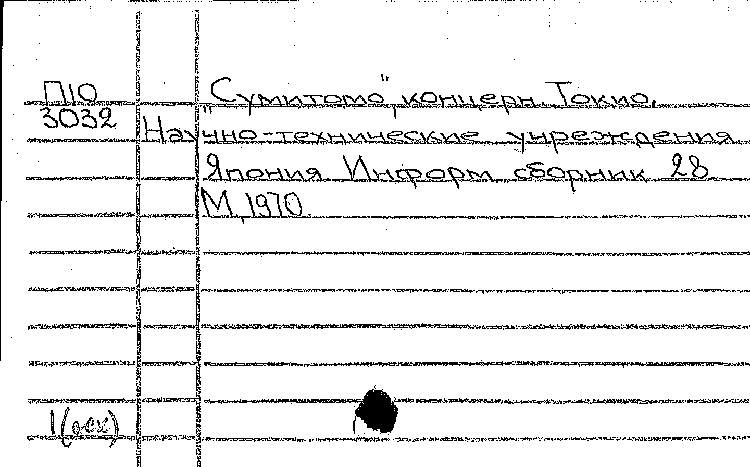 П10
3032
"Сумитомо", концерн. Токио.
Научно-технические учреждения
Япония Информ. сборник 28
М, 1970.
1(осх)